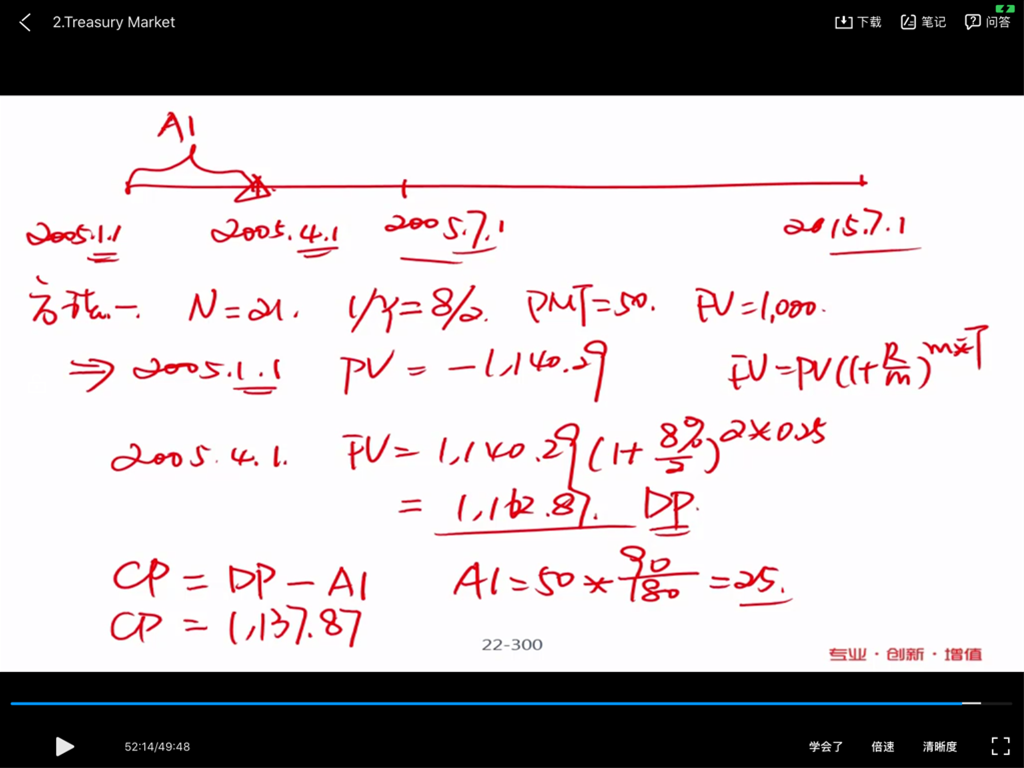 2.Treasury Market
下载 笔记 问答
AI
2005.1.1 2005.4.1 2005.7.1 2015.7.1
方法一. N=21. I/Y=8/2. PMT=50. FV=1,000.
⇒ 2005.1.1 PV = -1,140.29 FV=PV(1+R/m)^m*T
2005.4.1. FV= 1,140.29(1+8%/2)^2*0.25
= 1,162.87. DP.
CP = DP - AI AI=50*90/180=25.
CP = 1,137.87
22-300
专业·创新·增值
52:14/49:48 学会了 倍速 清晰度